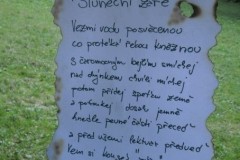 Sluneční záře
Vezmi vodu posvěcenou
co protéká řekou kněžnou
s čarovným bejlím smíchej
nad ohýnkem chvíli míchej
potom přidej špetku země
a promíchej dosti jemně
hnedle pevné čidlo přeceď
a před užením lektvar předveď
Vem si kousek